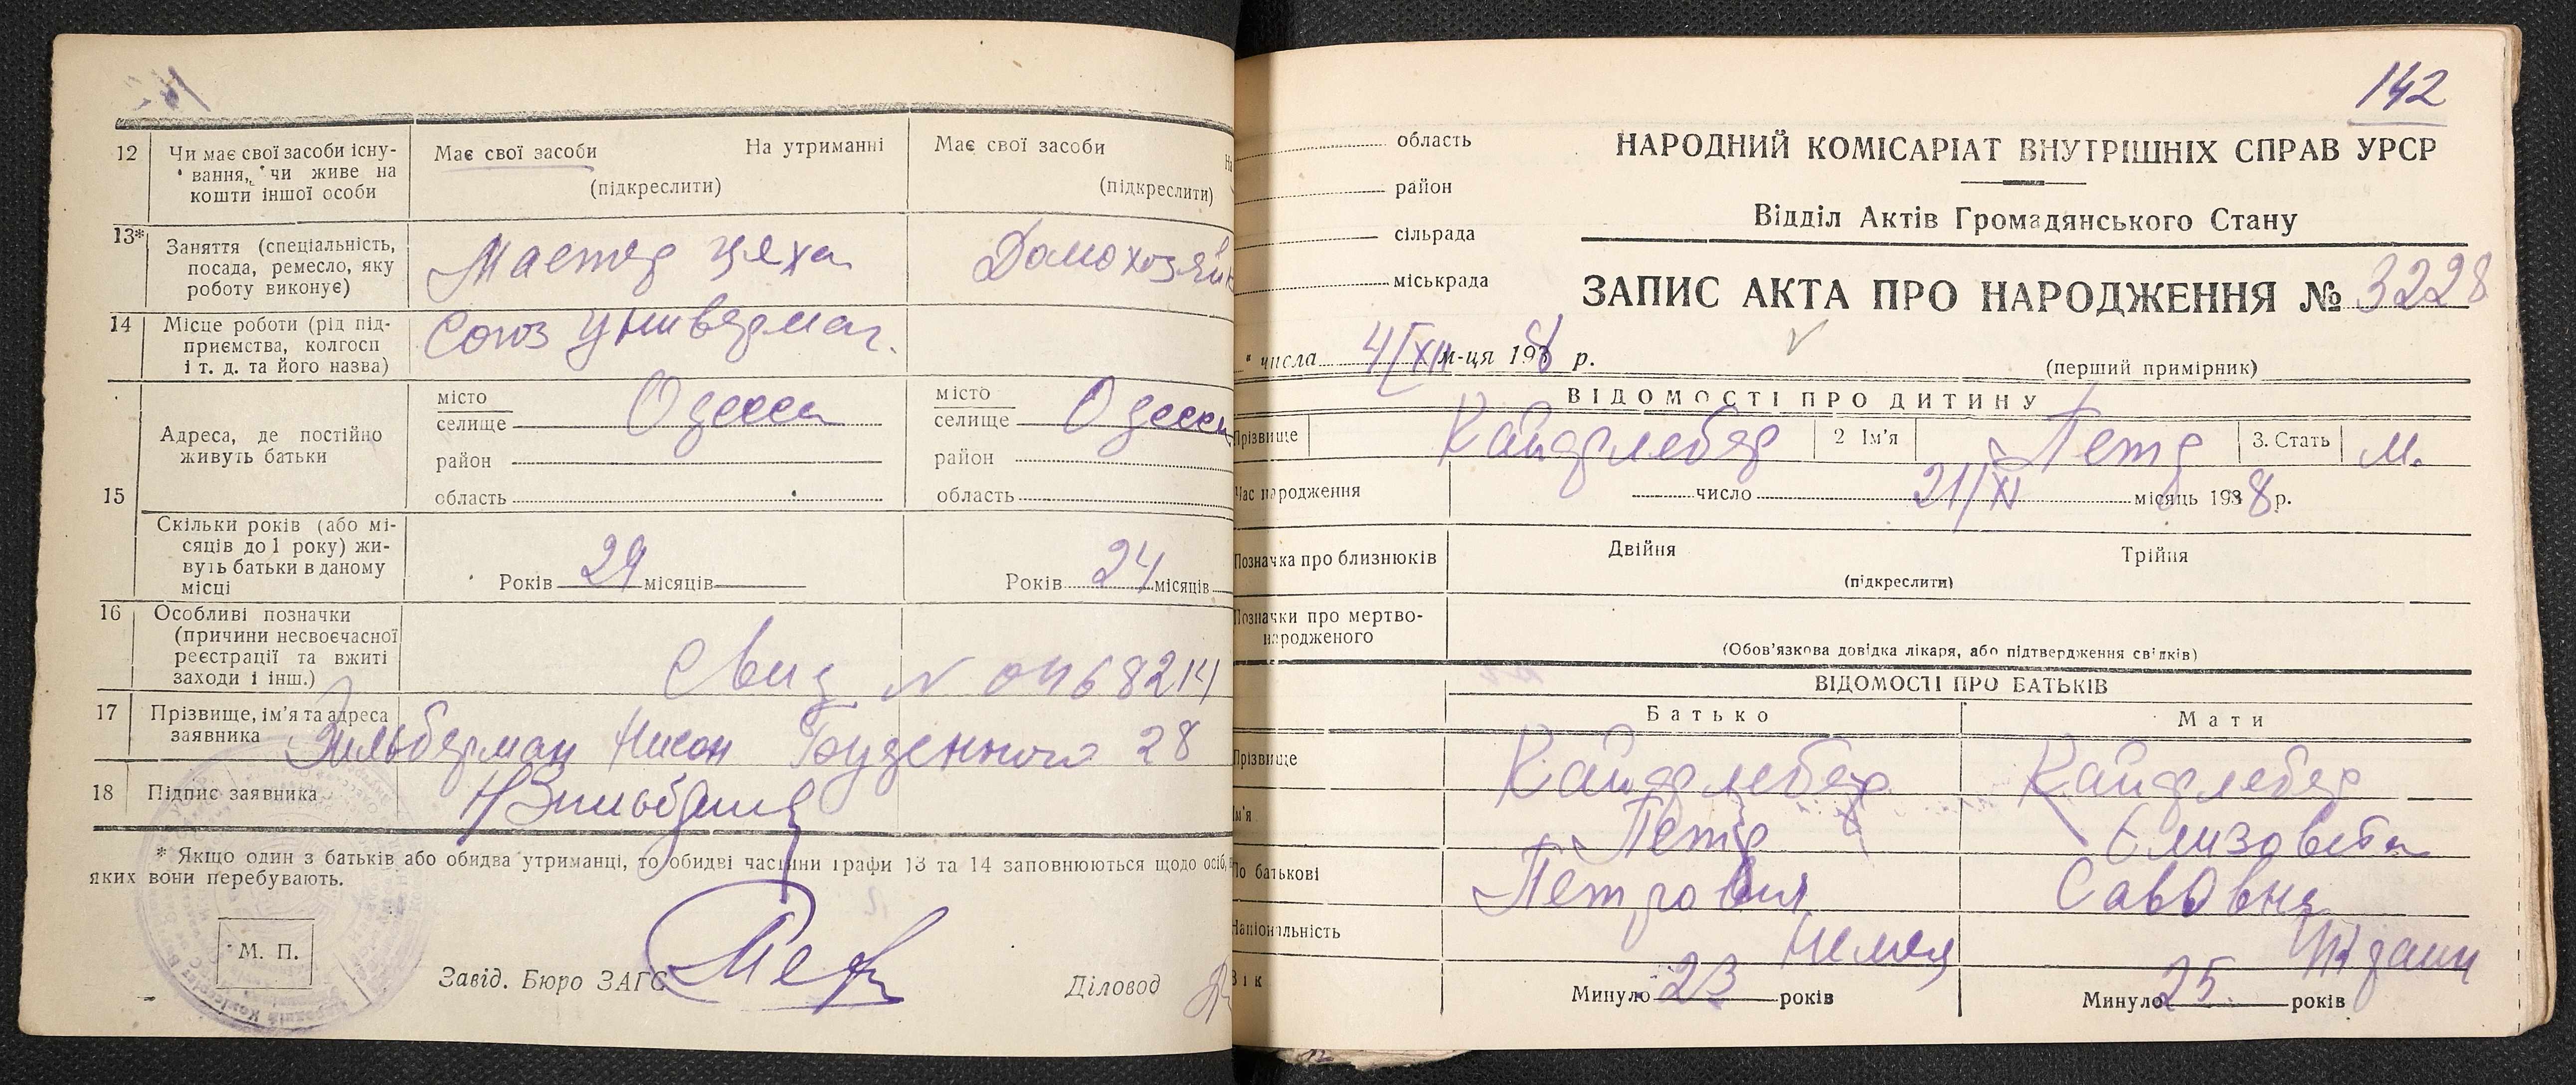 12 Чи має свої засоби існу-
вання, чи живе на
кошти іншої особи
Має свої засоби На утриманні
(підкреслити)
Має свої засоби
(підкреслити)
13* Заняття (спеціальність,
посада, ремесло, яку
роботу виконує)
Мастер цеха
Домохозяйк
14 Місце роботи (рід під-
приємства, колгосп
і т. д. та його назва)
Союз Универмаг.
15 Адреса, де постійно
живуть батьки
місто
селище Одесса
район
область
місто
селище Одесса
район
область
Скільки років (або мі-
сяців до 1 року) жи-
вуть батьки в даному
місці
Років 29 місяців
Років 24 місяців
16 Особливі позначки
(причини несвоєчасної
реєстрації та вжиті
заходи і інш.)
Свид N 0468214
17 Прізвище, ім'я та адреса
заявника
Зильберман Нисон Буденного 28
18 Підпис заявника
* Якщо один з батьків або обидва утриманці, то обидві частини графи 13 та 14 заповнюються щодо осіб,
яких вони перебувають.
М. П.
Завід. Бюро ЗАГС
Діловод
142
область
район
сільрада
міськрада
НАРОДНИЙ КОМІСАРІАТ ВНУТРІШНІХ СПРАВ УРСР
Відділ Актів Громадянського Стану
ЗАПИС АКТА ПРО НАРОДЖЕННЯ № 3228
" числа 4/XII м-ця 1938 р.
(перший примірник)
ВІДОМОСТІ ПРО ДИТИНУ
Прізвище Кайфлебер 2 Ім'я Петр 3. Стать М.
Час народження число 21/XI місяць 1938 р.
Позначка про близнюків Двійня Трійня
(підкреслити)
Позначки про мертво-
народженого
(Обов'язкова довідка лікаря, або підтвердження свідків)
ВІДОМОСТІ ПРО БАТЬКІВ
Батько Мати
Прізвище Кайфлебер Кайфлебер
Ім'я Петр Елизовета
По батькові Петрович Саввовна
Національність Немец
Вік Минуло 23 років Минуло 25 років